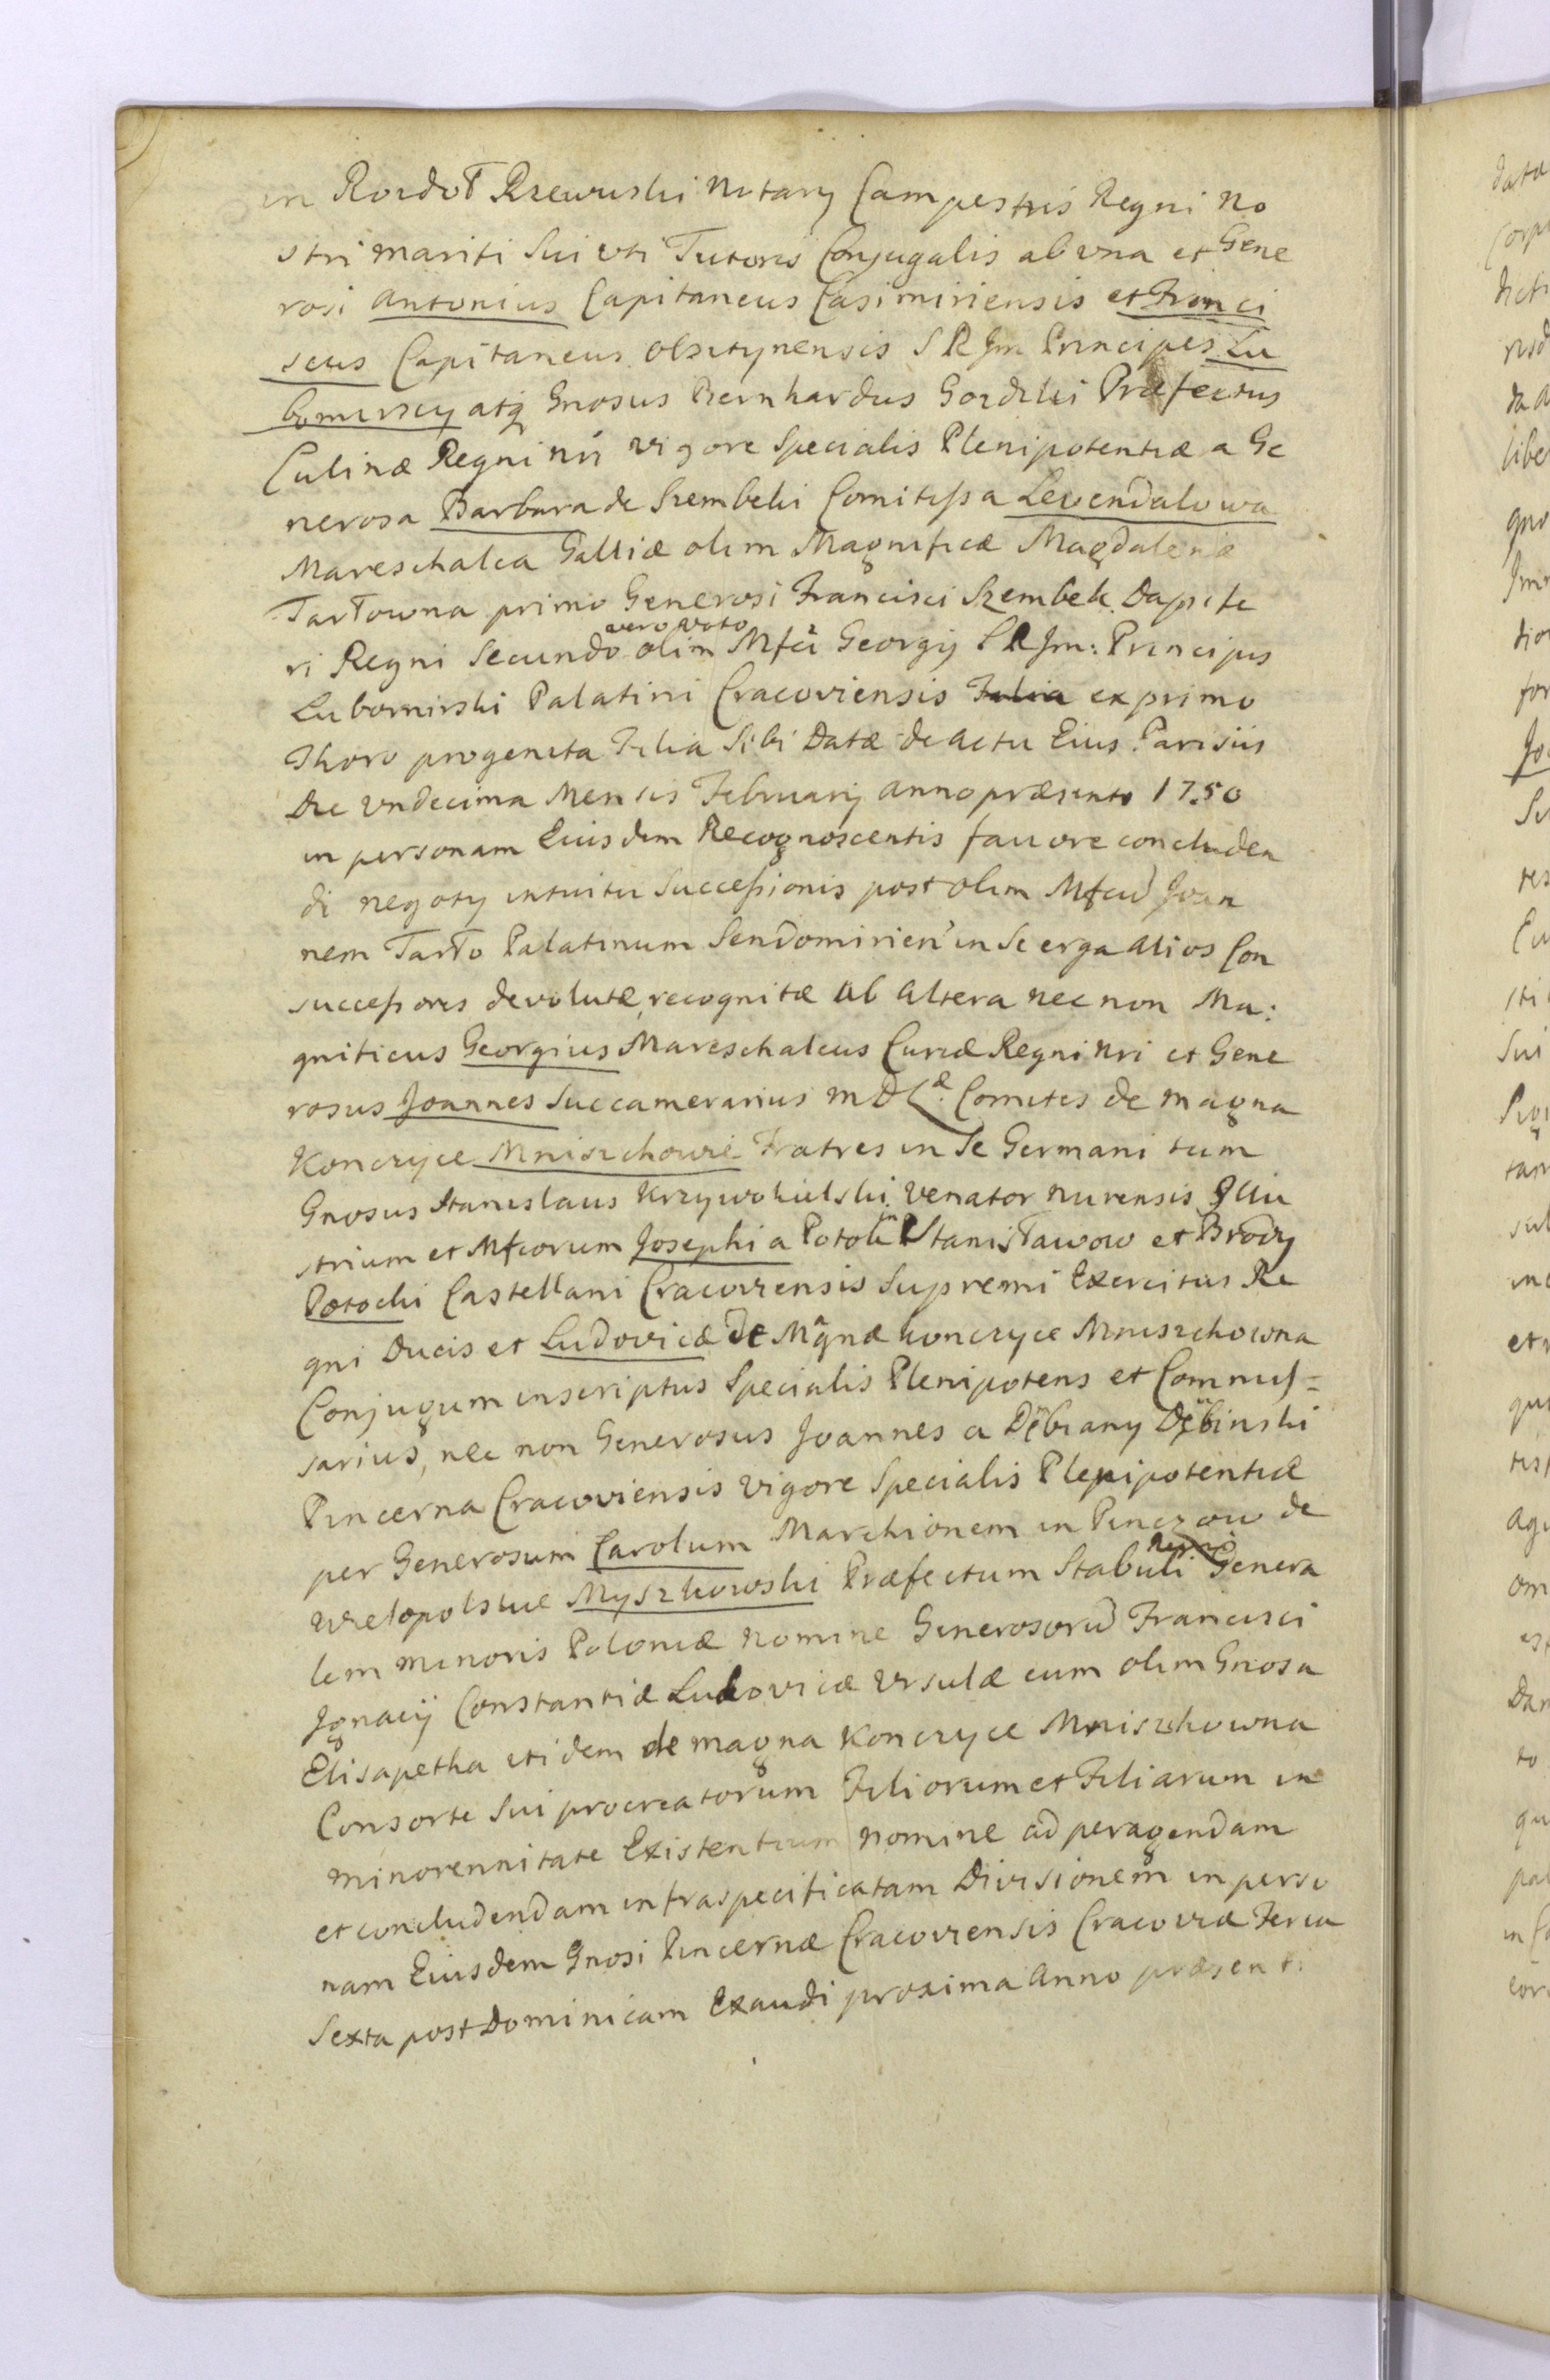 in Rozdoł Rzewuski Notarij Campestris Regni No
stri mariti Sui uti Tutoris Conjugalis ab una et Gene
rosi Antonius Capitaneus Casimiriensis et Franci
scus Capitaneus Olsztynensis S R Jm Principes Lu
bomirscy atq Gnosus Bernhardus Gozdzki Præfectus
Culinæ Regni nri vigore Specialis Plenipotentiæ a Ge
nerosa Barbara de Szembeki Comitissa Levendalowa
Mareschalca Galliæ olim Magnificæ Magdalenæ
Tarłowna primo Generosi Francisci Szembek Dapife
ri Regni Secundo vero voto olim Mfci Georgij S R Jm: Principis
Lubomirski Palatini Cracoviensis Filia ex primo
Thoro progenita Filia Sibi Datæ de actu Eius Parisiis
Die undecima Mensis Februarij anno præsenti 1750
in personam Eiusdem Recognoscentis favore concluden
di negotij intuitu Successionis post olim Mfcum Joan
nem Tarło Palatinum Sendomirien in Se erga alios Con
successores devolutæ, recognitæ ab altera nec non Ma:
gnificus Georgius Mareschalcus Curiæ Regni nri et Gene
rosus Joannes Succamerarius M D L Comites de magna
Konczyce Mniszchowie Fratres in Se Germani tum
Gnosus Stanislaus Krzywokulski Venator Nurensis Illu
strium et Mfcorum Josephi a Potok in Stanisławow et Brody
Potocki Castellani Cracoviensis Supremi Exercitus Re
gni Ducis et Ludovicæ de Magnæ Konczyce Mniszchowna
Conjugum inscriptus Specialis Plenipotens et Commis=
sarius, nec non Generosus Joannes a Dębiany Dębinski
Pincerna Cracoviensis vigore Specialis Plenipotentiæ
per Generosum Carolum Marchionem in Pinczow de
Wielopolskie Myszkowski Præfectum Stabuli Regni Genera
lem minoris Poloniæ nomine Generosorum Francisci
Jgnacij Constantiæ Ludovicæ Ursulæ cum olim Gnosa
Elisapetha itidem de magna Konczyce Mniszchowna
Consorte Sui procreatorum Filiorum et Filiarum in
minorennitate Existentium nomine ad peragendam
et concludendam infraspecificatam Divisionem in perso
nam Eiusdem Gnosi Pincernæ Cracoviensis Cracoviæ Feria
Sexta post Dominicam Exaudi proxima Anno præsenti